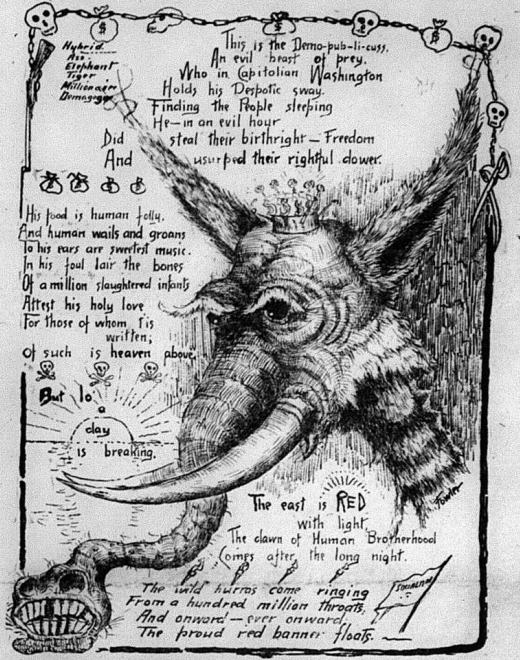 Hybrid.
Ass.
Elephant
Tiger
Millionair
Demagogue
This is the Demo-pub-li-cuss.
An evil beast of prey.
Who in Capitolian Washington
Holds his Despotic sway.
Finding the People sleeping
He—in an evil hour
Did steal their birthright—Freedom
And usurped their rightful dower.
His food is human folly.
And human wails and groans
To his ears are sweetest music.
In his foul lair the bones
Of a million slaughtered infants
Attest his holy love
For those of whom t'is
written;
Of such is heaven above.
But lo
a
day
is breaking.
The east is RED
with light
The dawn of Human Brotherhood
Comes after, the long night.
The wild hurras come ringing
From a hundred million throats,
And onward—ever onward,
The proud red banner floats.
Fowler
$
$
$